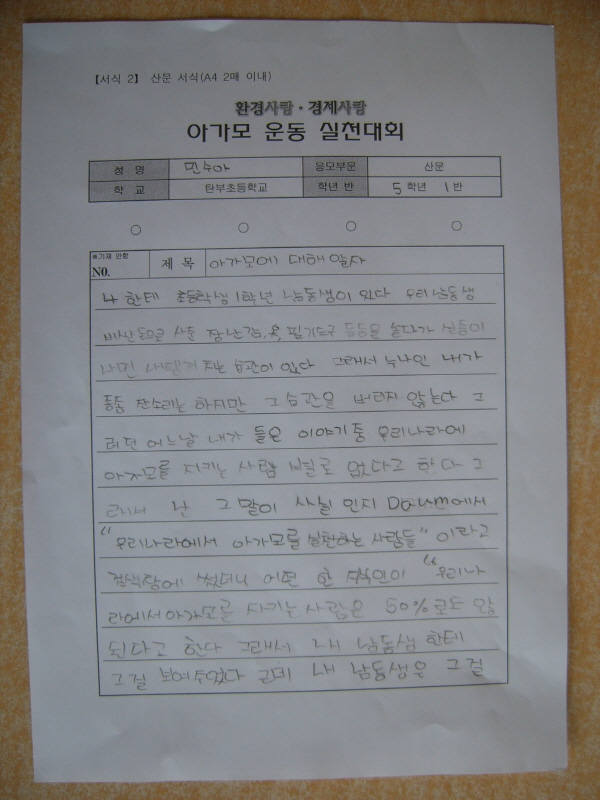 【서식 2】 산문 서식(A4 2매 이내)
환경사랑·경제사랑
아가모 운동 실천대회
성 명 민수아 응모부문 산문
학 교 탄부초등학교 학년 반 5 학년 1 반
※기재 안함
NO. 제 목 아가모에 대해 알자
나 한테 초등학생 1학년 남동생이 있다 우리 남동생
비싼 돈으로 사준 장난감, 옷, 필기도구 등등을 쓰다가 싫증이
나면 내팽겨 치는 습관이 있다 그래서 누나인 내가
종종 잔소리는 하지만 그 습관을 버리지 않는다 그
러던 어느날 내가 들은 이야기 중 우리나라에
아가모를 지키는 사람 별로 없다고 한다 그
래서 난 그 말이 사실 인지 Daum에서
"우리나라에서 아가모를 실천하는 사람들" 이라고
검색창에 썼더니 어떤 한 지식인이 "우리나
라에서 아가모를 지키는 사람은 50%로도 안
된다고 한다 그래서 내 남동생 한테
그걸 보여주었다 근데 내 남동생은 그걸